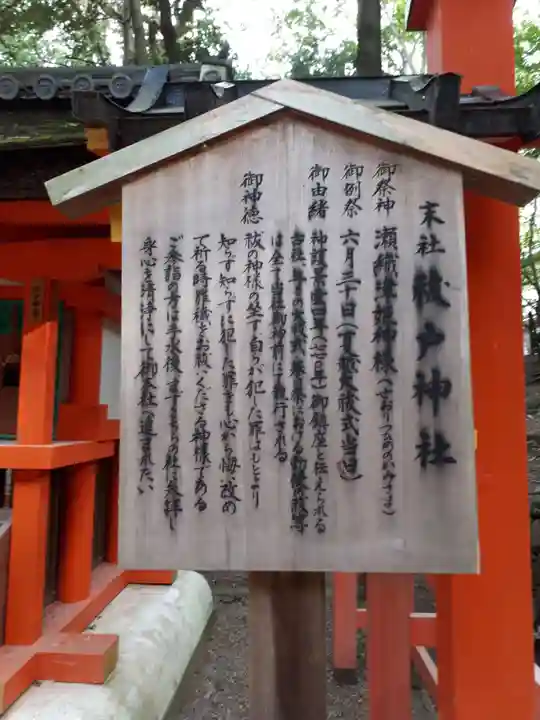 末社 祓戸神社
御祭神 瀬織津姫神様(せおりつひめのかみさま)
御例祭 六月三十日(夏越大祓式当日)
御由緒 神護景雲四年(七七〇年)御鎮座と伝えられる
古社 年二の大祓式 春日祭における
は全て当社御神前にて執行される
御神徳 祓の神様の坐す 自らが犯した罪はもとより
知らず知らずに犯した罪をも心から悔い改め
て祈る時罪穢をお祓いくださる神様である
ご参詣の方は手水後 まずこちらの社に参拝し
身心を清浄にして御本社へ進まれたい